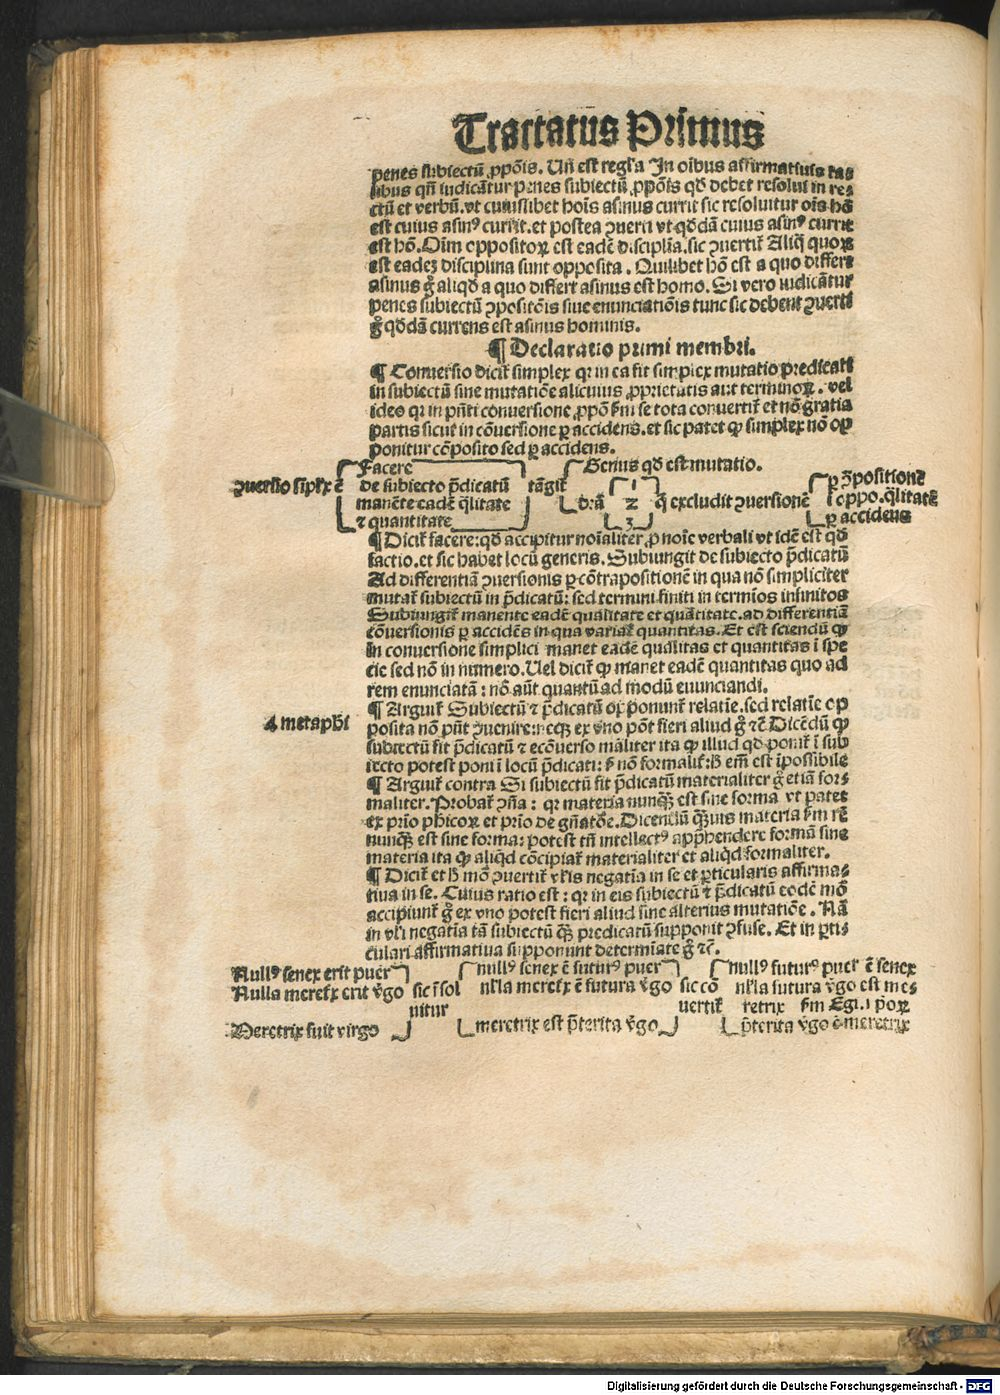 Tractatus Primus
penes subiectū ꝓpōis. Uñ est regl'a In oībus affirmatiuis ta⸗
libus qñ iudicãtur penes subiectū ꝓpōis qđ debet resolui in re⸗
ctū et verbū. vt cuiuslibet hoīs asinus currit sic resoluitur oīs hō
est cuius asinꝰ currit. et postea ꝯuerti vt qđdã cuius asinꝰ currit
est hō. Oīm oppositoꝝ est eadē disciplīa. sic ꝯuertit̄ Aliq̄ quoꝝ
est eadeꝫ disciplina sunt opposita. Quilibet hō est a quo differt
asinus g̊ aliqđ a quo differt asinus est homo. Si vero iudicãtur
penes subiectū ꝯpositōis siue enunciatiōis tunc sic debent ꝯuerti
g̊ qđdã currens est asinus hominis.
¶ Declaratio primi membri.
¶ Conuersio dicit̄ simplex qꝛ in ea fit simplex mutatio predicati
in subiectū sine mutatiōe alicuius ꝓprietatis aut terminoꝝ. vel
ideo qꝛ in pñti conuersione ꝓpō ẜm se tota conuertit̄ et nō gratia
partis sicut in cōuersione ꝑ accidens. et sic patet ꝙ simplex nō op
ponitur cōposito sed ꝑ accidens.
ꝯuersio sīplꝛx ē
Facere
de subiecto p̄dicatū
manēte eadē q̄litate
⁊ quantitate
tãgit̄
Genus qđ est mutatio.
d:ã
1
2
3
q̄ excludit ꝯuersionē
ꝑ ꝯ̄positionē
ī oppo. q̄litatē
ꝑ accidens
¶ Dicit̄ facere: qđ accipitur noīaliter ꝓ noīe verbali vt idē est qđ
factio. et sic habet locū generis. Subiungit de subiecto p̄dicatū
Ad differentiã ꝯuersionis ꝑ cōtrapositionē in qua nō simpliciter
mutat̄ subiectū in p̄dicatū: sed termini finiti in termīos infinitos
Subiungit̄ manente eadē qualitate et quãtitate. ad differentiã
cōuersionis ꝑ accidēs in qua variat̄ quantitas. Et est sciendū ꝙ
in conuersione simplici manet eadē qualitas et quantitas ī spe
cie sed nō in numero. Uel dicit̄ ꝙ manet eadē quantitas quo ad
rem enunciatã: nō aūt quantū ad modū enunciandi.
¶ Arguit̄ Subiectū ⁊ p̄dicatū opponunt̄ relatīe. sed relatīe op
4 metaph'i
posita nō pñt ꝯuenire: neqꝫ ex vno pōt fieri aliud g̊ ⁊c̄ Dicēdū ꝙ
subiectū fit p̄dicatū ⁊ ecōuerso māliter ita ꝙ illud qđ ponit̄ ī sub
iecto potest poni ī locū p̄dicati: ẜ nō formalit̄: ħ em̄ est īpossibile
¶ Arguit̄ contra Si subiectū fit p̄dicatū materialiter g̊ etiã for⸗
maliter. Probat̄ ꝯña: qꝛ materia nunq̄ est sine forma vt patet
ex prīo phicoꝝ et prīo de gñatōe. Dicendū q̄uis materia ẜm rē
nunq̄ est sine forma: potest tñ intellectꝰ app̄hendere formã sine
materia ita ꝙ aliq̄d cōcipiat̄ materialiter et aliq̄d formaliter.
¶ Dicit̄ et ħ mō ꝯuertit̄ vl'is negatīa in se et ꝑticularis affirma⸗
tiua in se. Cuius ratio est: qꝛ in eis subiectū ⁊ p̄dicatū eodē mō
accipiunt̄ g̊ ex vno potest fieri aliud sine alterius mutatiōe. Nã
in vl'i negatīa tã subiectū q̄ꝫ predicatū supponit ꝯfuse. Et in ꝑti⸗
culari affirmatiua supponunt determīate g̊ ⁊c̄.
Nullꝰ senex erit puer
Nulla meret̄x erit v̊go
Meretrix fuit virgo
sic r̄sol
uitur
nullꝰ senex ē futurꝰ puer
nl'la meret̄x ē futura v̊go
meretrix est p̄terita v̊go
sic cō
uertit̄
nullꝰ futurꝰ puer ē senex
nl'la futura v̊go est me⸗
retrix ẜm Egi. 1 poꝝ
p̄terita v̊go ē meretrix
Digitalisierung gefördert durch die Deutsche Forschungsgemeinschaft - DFG